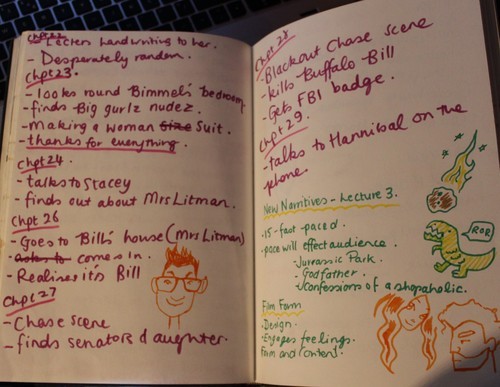 Chpt 22
- Lecters handwriting to her.
- Desperately random.
Chpt 23.
- looks round Bimmel's bedroom
- finds Big gurlz nudez.
- Making a woman Size Suit.
- thanks for everything.
Chpt 24.
- talks to Stacey
- finds out about Mrs Litman.
Chpt 26
- Goes to Bill's house (Mrs Litman)
- asks to comes in.
- Realises it's Bill
Chpt 27
- Chase scene
- finds senators daughter.
Chpt 28
- Blackout Chase Scene
- kills Buffalo Bill
- Gets FBI badge.
Chpt 29.
- talks to Hannibal on the
phone.
New Narritives - Lecture 3.
- 15 - fast paced
- pace will effect audience.
- Jurrassic Park.
- Godfather.
- Confessions of a shopaholic.
ROR
Film Form
- Design.
- Engages feelings.
Form and Content.